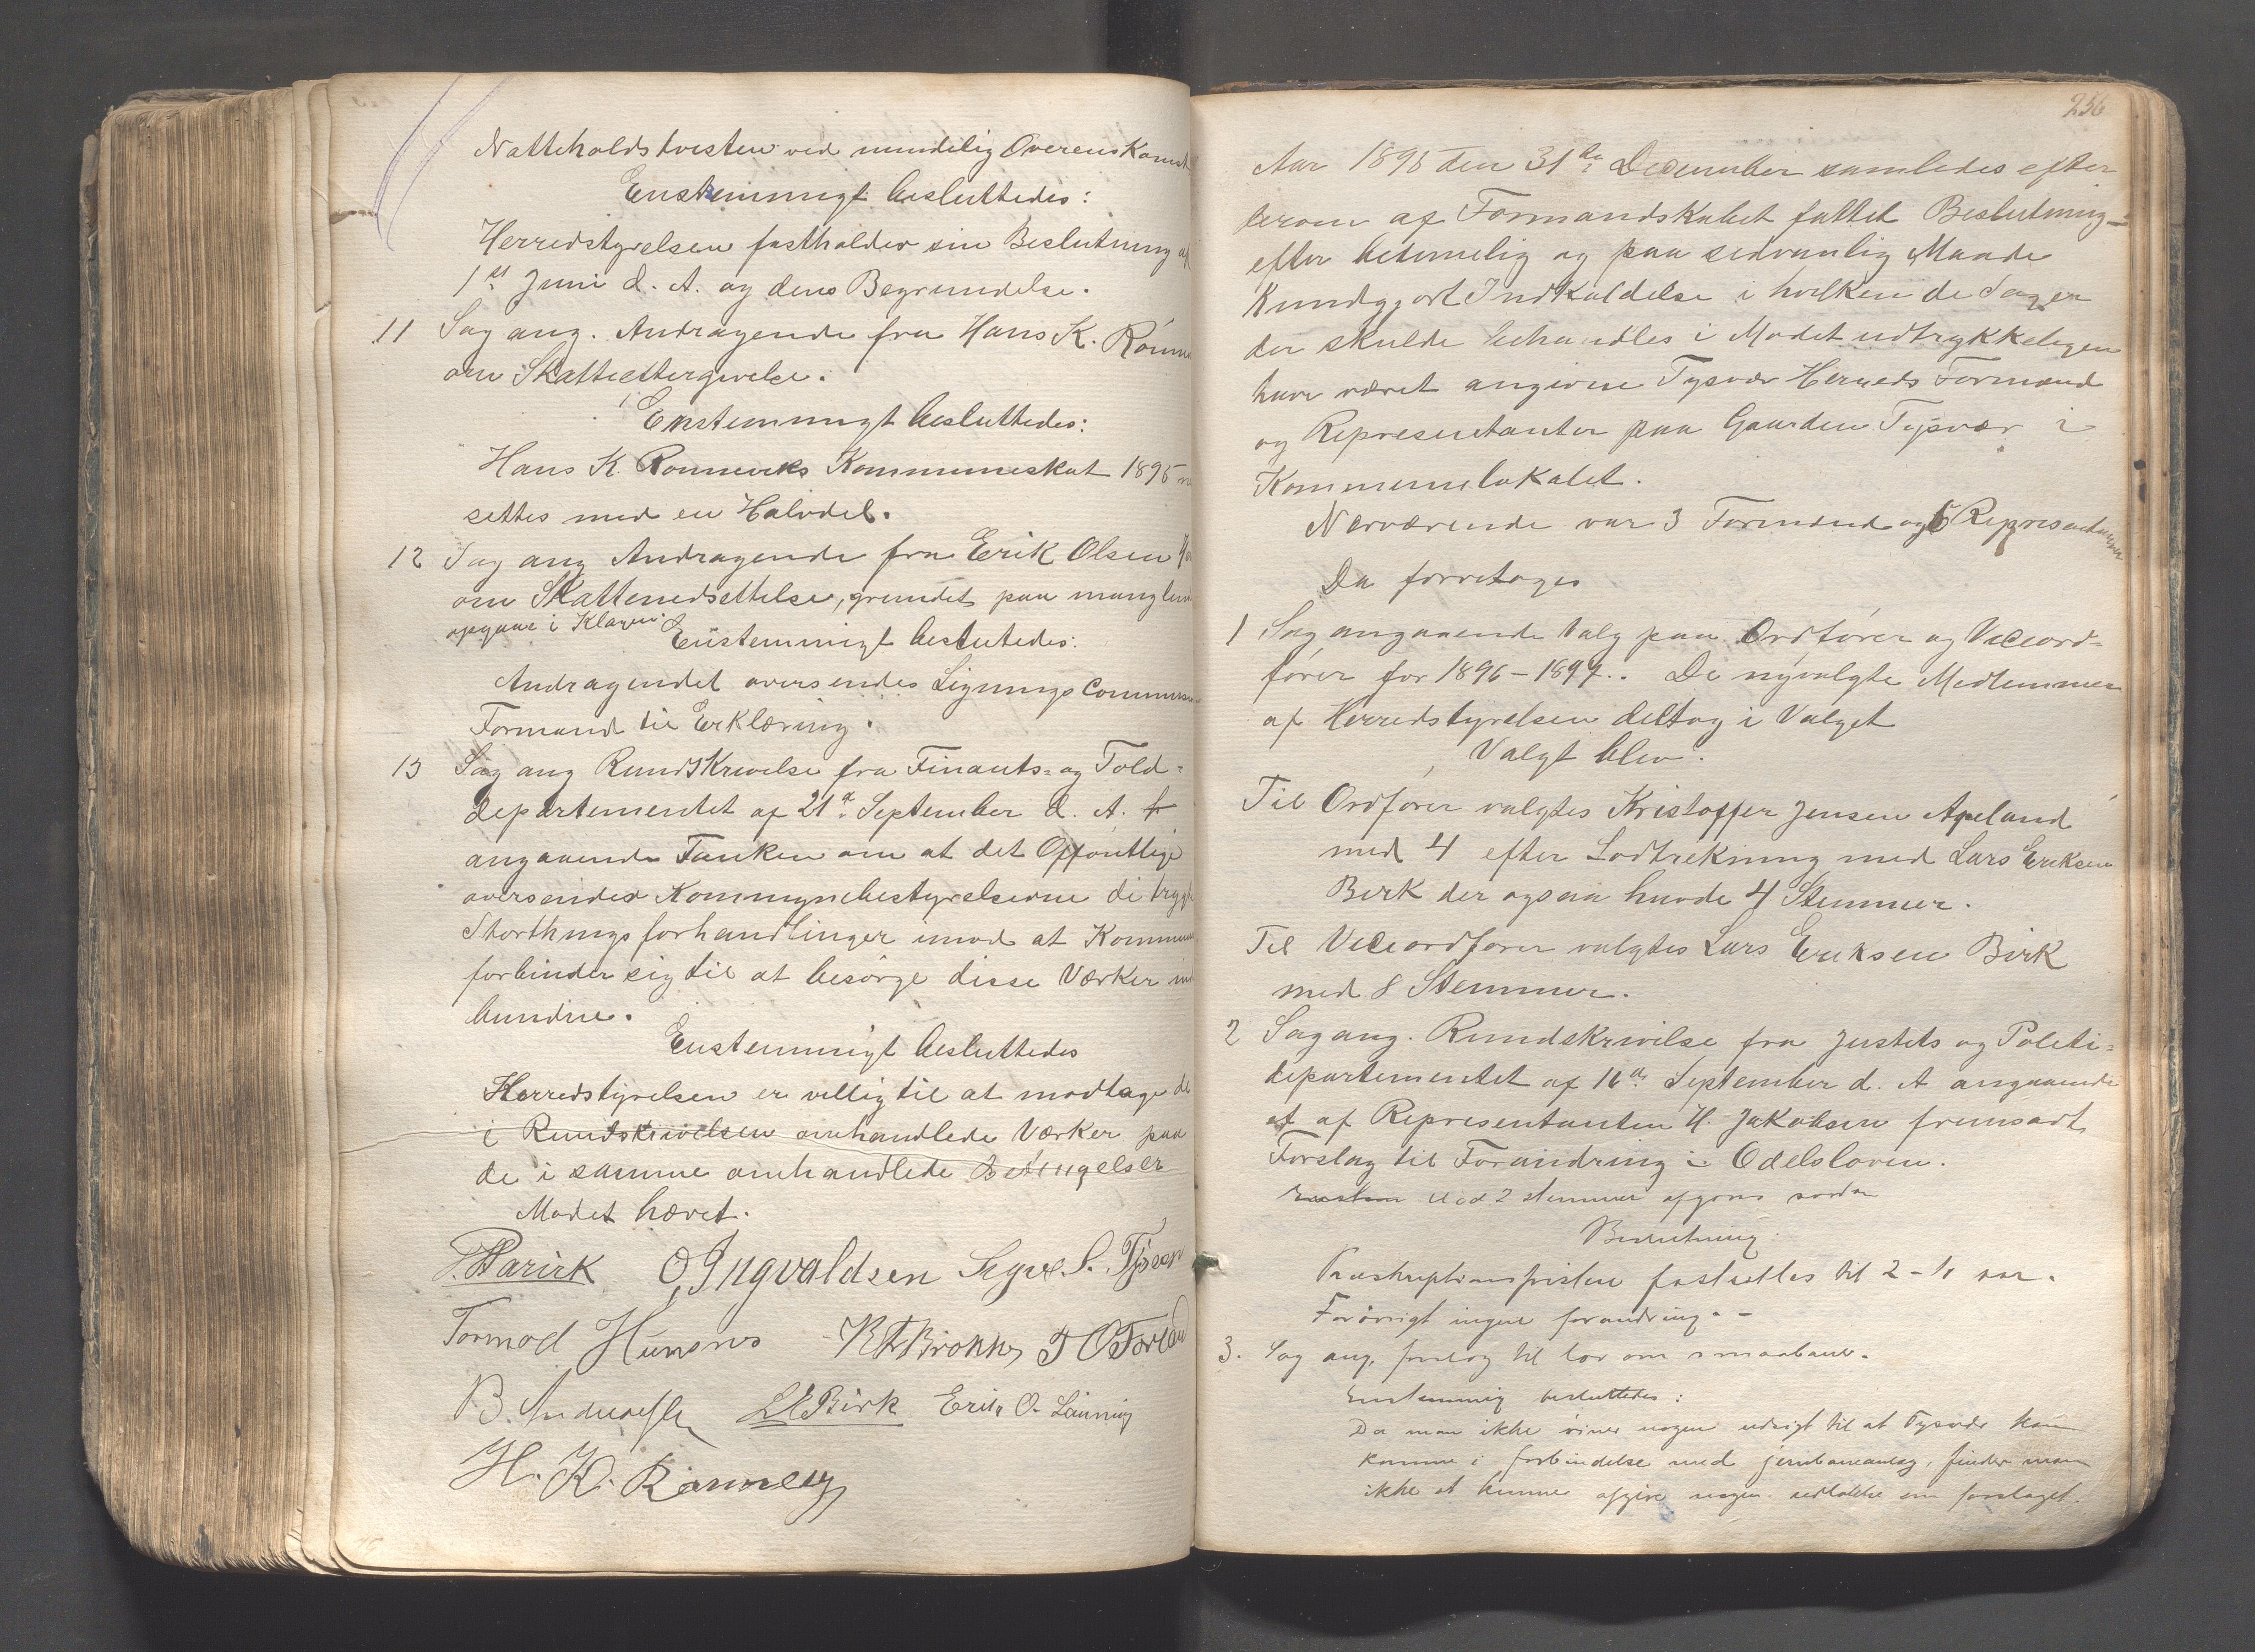 Natteholdstvisten ved mindelig Overenskomst
Enstemmigt besluttedes:
Herredstyrelsen fastholder sin Beslutning af
1ste Juni d. A. og dens Begrundelse.
11 Sag ang. Andragende fra Hans K. Rönne
om Skatteettergivelse.
Enstemmigt besluttedes:
Hans K. Ronneviks Kommuneskat 1895
settes med en Halvdel.
12 Sag ang Andragende fra Erik Olsen
om Skattenedsettelse, grundet paa manglende
opgave i Klagen
Enstemmigt beslutedes:
Andragendet oversendes Ligningscommissi
Formand til Erklæring.
13 Sag ang Rundskrivelse fra Finants- og Told-
departementet af 21de September d. A.
angaaende Tanken om at det Offentlige
oversender Kommunebestyrelserne de trygte
Storthingsforhandlinger imod at Kommune
forbinder sig til at besörge disse Værker ind
bundne.
Enstemmigt besluttedes
Herredstyrelsen er villig til at modtage de
i Rundskrivelsen omhandlede Værker paa
de i samme omhandlede Betingelser
Mødet hævet.
O Ingvaldsen
Tormod
L E Birk Erik O.
H. K.
256
Aar 1895 den 31de December samledes efter
derom af Formandskabet fattet Beslutning
efter betimelig og paa sedvanlig Maade
Kundgjort Indkaldelse i hvilken de Sager
der skulde behandles i Mødet udtrykkeligen
have været angivne Tysvær Herreds Formænd
og Representanter paa Gaarden Tysvær i
Kommunelokalet.
Nærværende var 3 Formænd og 6 Representanter
Da forretoges
1 Sag angaaende Valg paa Ordförer og Viceord-
förer for 1896-1897. De nyvalgte Medlemmer
af Herredstyrelsen deltog i Valget
Valgt blev.
Til Ordförer valgtes Kristoffer Jensen Apeland
med 4 efter Lodtrekning med Lars Eriksen
Birk der ogsaa havde 4 Stemmer.
Til Viceordförer valgtes Lars Eriksen Birk
med 8 Stemmer.
2 Sag ang. Rundskrivelse fra Justits og Politi-
departementet af 16de September d. A angaaende
et af Representanten H. Jakobsen fremsadt
Forslag til Forandring i Odelsloven.
Mod 2 stemmer afgaves saadan
Beslutning:
Præskriptionsfristen fastsættes til 2-to aar.
Forövrigt ingen forandring. -
3. Sag ang. forslag til lov om smaabaner.
Enstemmig besluttedes:
Da man ikke öiner nogen udsigt til at Tysvær kan
komme i forbindelse med jernbaneanlæg, finder man
ikke at kunne afgive nogen udtalelse om forslaget.